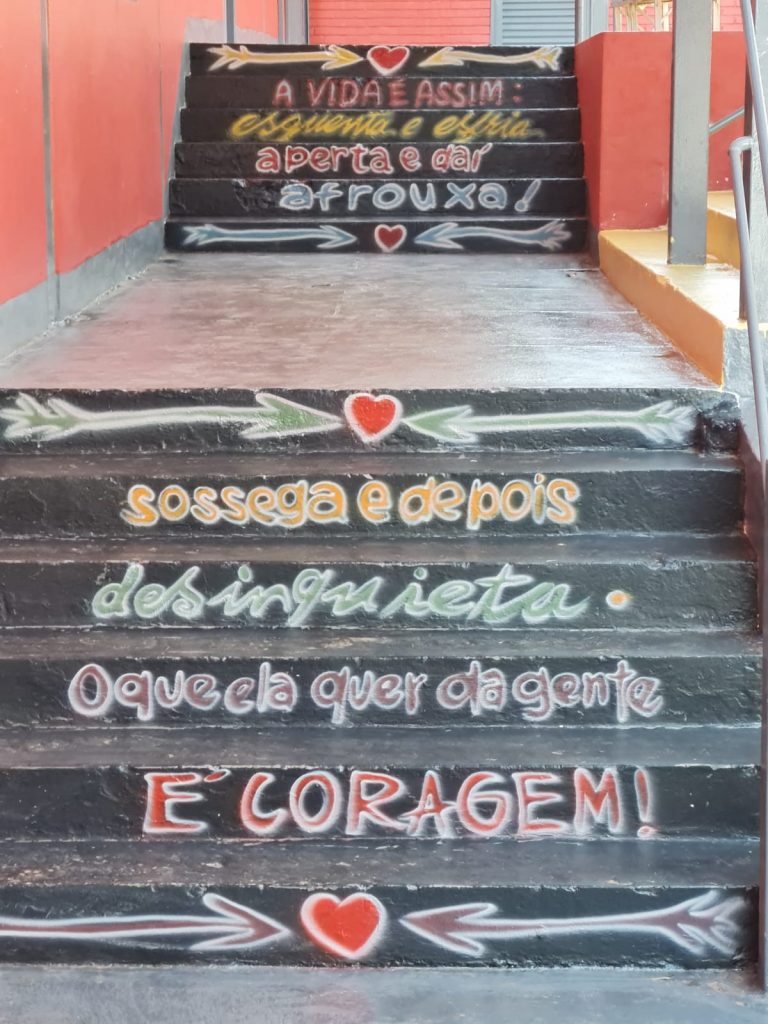 A VIDA É ASSIM:
esquenta e esfria
aperta e daí
afrouxa!
sossega e depois
desinquieta.
O que ela quer da gente
É CORAGEM!